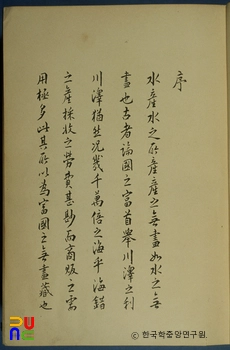 序
水産水之所産産之無盡如水之無
盡也古者論國之富首擧川澤之利
川澤猶然况幾千萬倍之海乎海錯
之産採收之勞費甚尠而商販之需
用極多此其所以為富國之無盡藏也
© 한국학중앙연구원